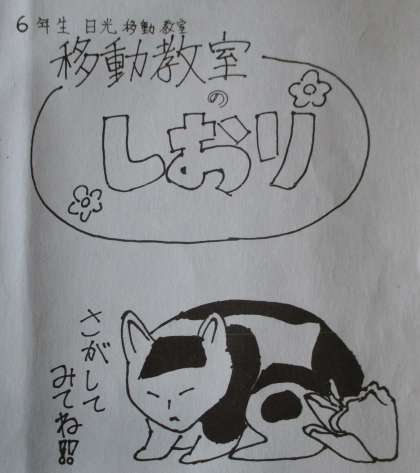 6年生 日光移動教室
移動教室
の
しおり
さがして
みてね!!